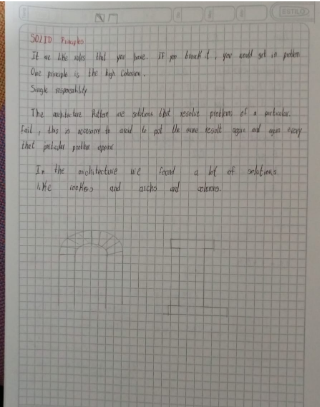 SOLID Principles
It are like rules that you have. If you break it, you would get in problem.
One principle is the high cohesion.
Single responsability.
The architecture Pattern are solutions that resolve problems of a particular
this is to to get the same result again and again every
that particular problem appear.
In the architecture we found a lot of solutions
like and archs and columns.